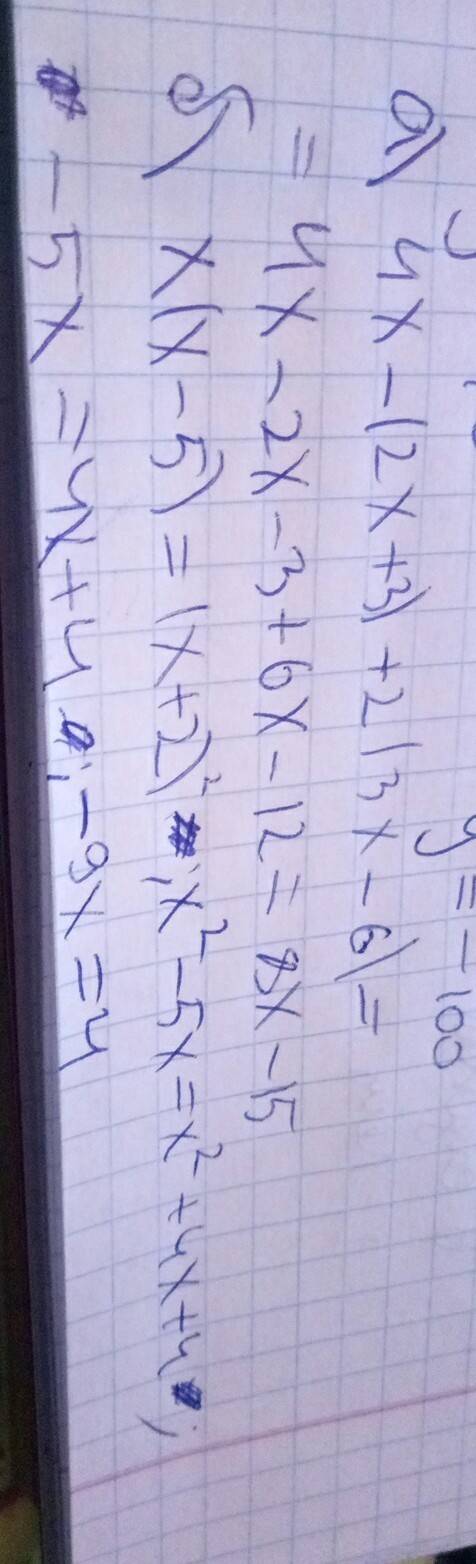 y = -100
а) 4x - (2x + 3) + 2(3x - 6) =
= 4x - 2x - 3 + 6x - 12 = 8x - 15
б) x(x - 5) = (x + 2)²; x² - 5x = x² + 4x + 4;
- 5x = 4x + 4; - 9x = 4